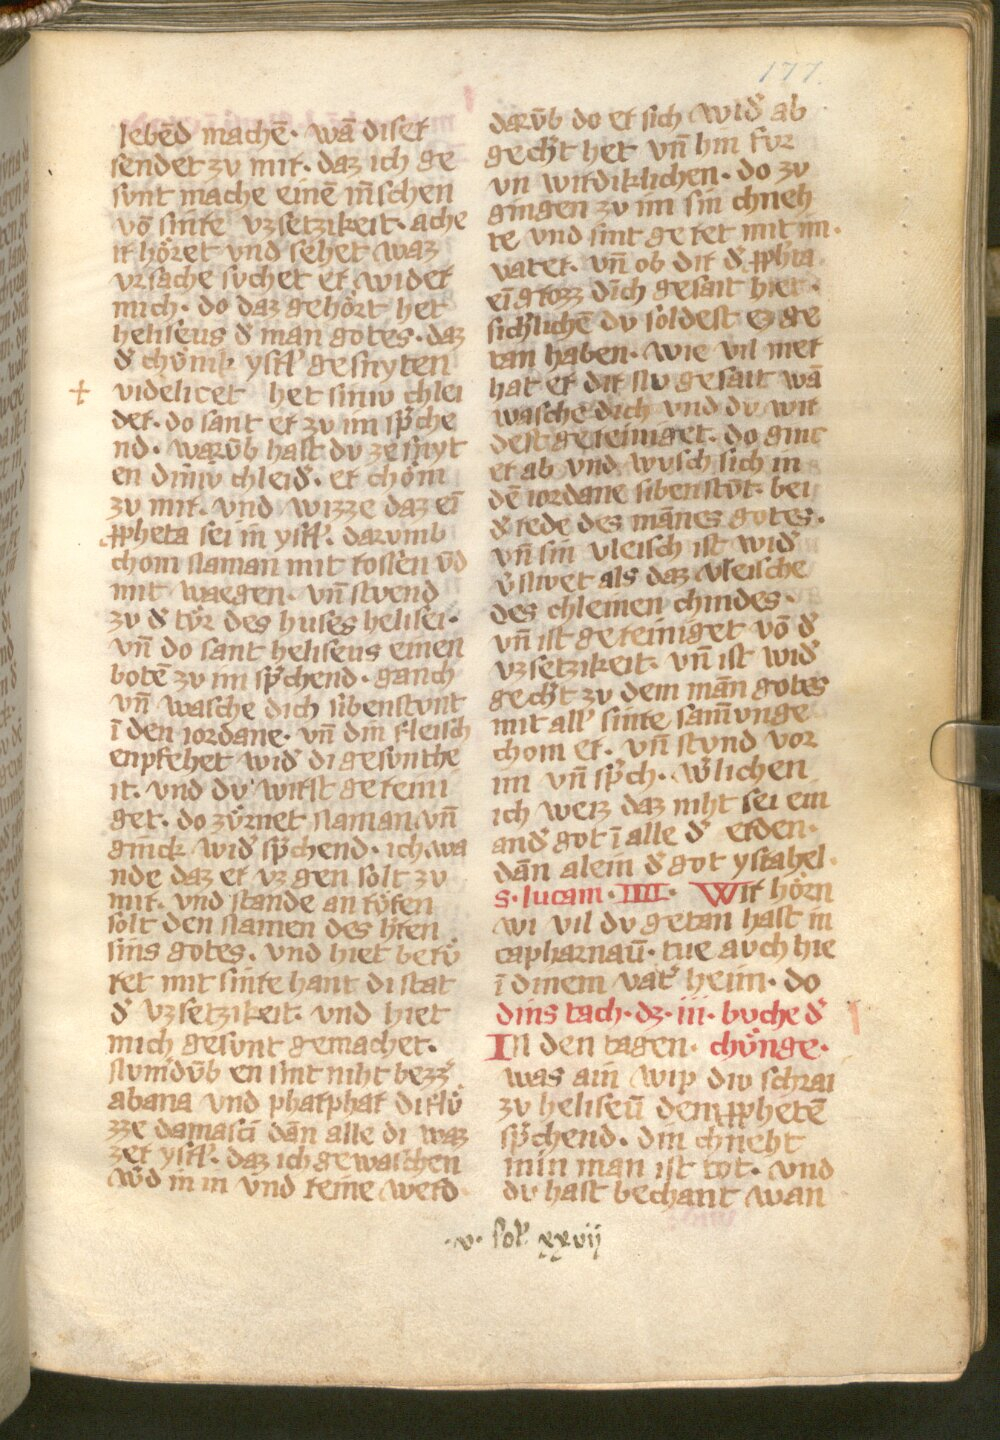 177.
lebēd mache. wā diser
sendet zv mir. daz ich ge
svnt mache einē m̄schen
vō sinre vzsetzikeit. ache
it hőret vnd sehet waz
vrsache svchet er wider
mich. do daz gehőrt het
heliseus d̕ man gotes. daz
d̕ chv̊nik ysrl̕ gesnyten
videlicet het siniv chlei
der. do sant er zv im sp̄che
nd. warv̄b hast dv zesnyt
en diniv chleid̕. er chőm
zv mir. vnd wizze daz eī
ꝓpheta sei in ysrl̕. darvmb
chom naman mit rossen v̄d
mit waegen. vn̄ stvend
zv d̕ tv̊r des huses helisei.
vn̄ do sant heliseus einen
botē zv im sp̄chend. ganch
vn̄ wasche dich sibenstvnt
ī den iordane. vn̄ din fleisch
enpfehet wid̕ di gesvnthe
it. vnd dv wirst gereini
get. do zv̊rnet naman vn̄
ginck wid̕ sp̄chend. ich wa
nde daz er vz gen solt zv
mir. vnd stande an rv̊fen
solt den namen des h̄ren
sins gotes. vnd hiet berv̊
ret mit sinre hant di stat
d̕ vzsetzikeit. vnd hiet
mich gesvnt gemachet.
nvm̄dv̄b en sint niht bezz̕
abana vnd pharphar di flv̊
zze damasci dān alle di waz
zer ysrl̕. daz ich gewaschen
w̕d in in vnd reine werd
darv̄b do er sich wid̕ ab
gech̄t het vn̄ hin fvr
vn wirdiklichen. do zv
gingen zv im sin chneh
te vnd sint geret mit im.
vater. vn̄ ob dir d̕ ꝓph̄ta
eī grozz dīch gesait hiet.
sich̕lichē dv soldest ez ge
tan haben. wie vil mer
hat er dir nv gesait wā
wasche dich vnd dv wir
dest gereiniget. do ginc
er ab vnd wvsch sich in
dē iordane sibenstv̄t. bei
d̕ rede des mānes gotes.
vn̄ sin vleisch ist wid̕
v̕niwet als daz vleische
des chleinen chindes.
vn̄ ist gereiniget vō d̕
vzsetzikeit. vn̄ ist wid̕
gech̄t zv dem mān gotes
mit all̕ sinre sam̄vnge
chom er. vn̄ stvnd vor
im vn̄ sp̄ch. w̕lichen
ich weiz daz niht sei ein
and̕ got ī alle d̕ erden.
dān alein d̕ got ysrahel.
s. lucam. IIII. Wir hőrn
wi vil dv getan hast in
capharnaū. tue avch hie
ī dinem vat̕ heim. do
dins tach. dz. iii. buche d̕
In den tagen. chv̊nge.
was ain wip div schrai
zv heliseū dem ꝓphetē
sp̄chend. din chneht
min man ist tot. vnd
dv hast bechant wan
.v. fol. xxvij